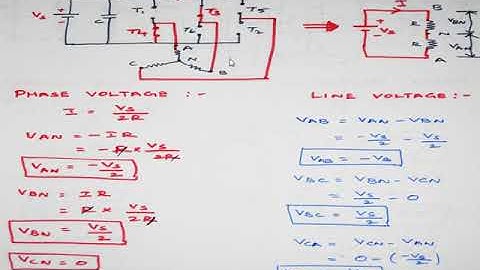 Vs C T1 T3 T5
T4 T6 T2
A
N
C B
I B
R VBN
Vs N
R VAN
A
PHASE VOLTAGE :-
I = Vs/2R
VAN = -IR
= -R × Vs/2R
VAN = -Vs/2
VBN = IR
= R × Vs/2R
VBN = Vs/2
VCN = 0
LINE VOLTAGE :-
VAB = VAN - VBN
= -Vs/2 - Vs/2
VAB = -Vs
VBC = VBN - VCN
= Vs/2 - 0
VBC = Vs/2
VCA = VCN - VAN
= 0 - (-Vs/2)